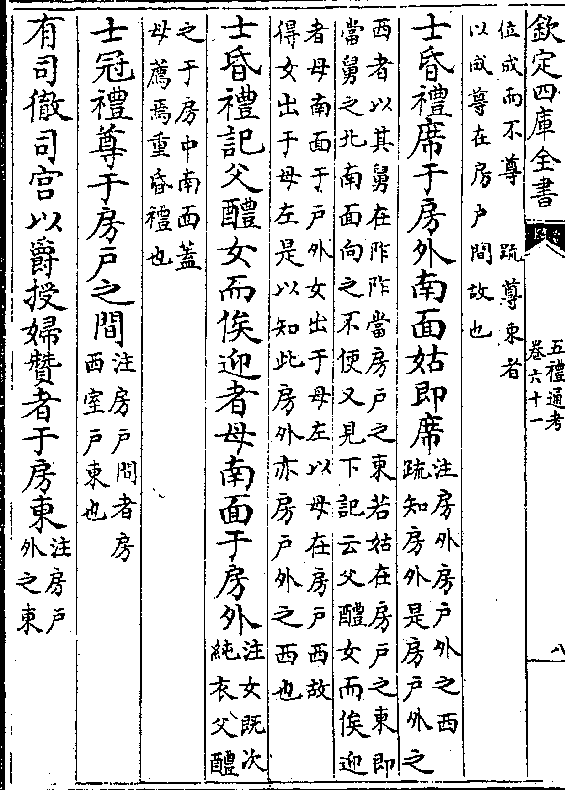 欽定四庫全書
五禮通考
卷六十一
八
位成而不尊 疏尊東者
以成尊在房戶間故也
士昏禮席于房外南面姑即席
注房外房戶外之西
疏知房外是房戶外之
西者以其舅在阼阼當房戶之東若姑在房戶之東即
當舅之北南面向之不便又見下記云父醴女而俟迎
者母南面于戶外女出于母左以母在房戶西故
得女出于母左是以知此房外亦房戶外之西也
士昏禮記父醴女而俟迎者母南面于房外
注女既次
純衣父醴
之于房中南面蓋
母薦焉重昏禮也
士冠禮尊于房戶之間
注房戶間者房
西室戶東也
有司徹司宫以爵授婦贊者于房東
注房戶
外之東